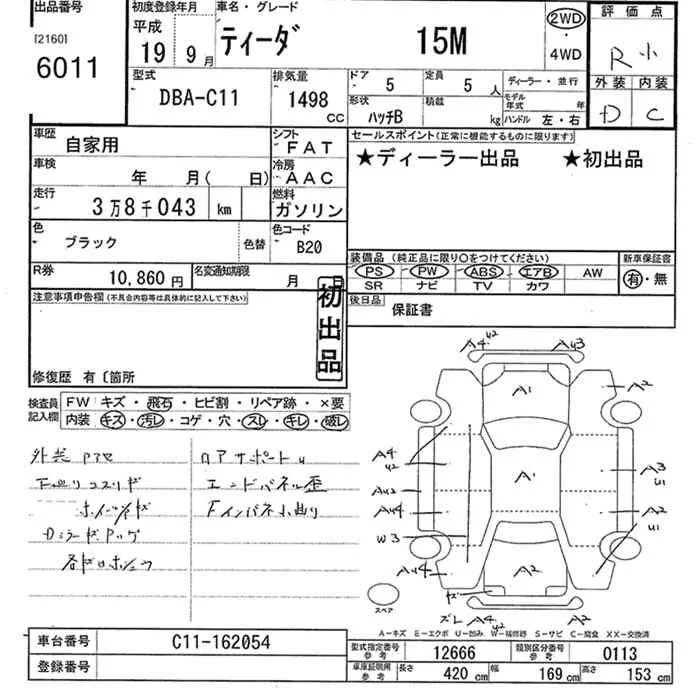 出品番号
[2160]
6011
初度登録年月
平成
19年9月
車名・グレード
ティーダ 15M
2WD
・
4WD
評価点
R小
外装 内装
D C
型式
DBA-C11
排気量
1498 CC
ドア 5
定員 5人
形状 ハッチB
積載 kg
ディーラー・並行
モデル年式 年
ハンドル 左・右
車歴 自家用
シフト FAT
セールスポイント(正常に機能するものに限ります)
★ディーラー出品 ★初出品
車検 年 月( 日)
冷房 AAC
走行 3万8千043 km
燃料 ガソリン
色 ブラック 色替
色コード B20
装備品(純正品に限り○をつけてください)
新車保証書
PS PW ABS エアB AW
SR ナビ TV カワ
有・無
R券 10,860円
名変通知期限 月 日
初出品
注意事項申告欄(不具合内容等は具体的に記入して下さい)
後日品 保証書
修復歴 有〔箇所
検査員記入欄
FW キズ・飛石・ヒビ割・リペア跡・×要
内装 キズ・汚レ・コゲ・穴・スレ・キレ・破レ
リアサポートu
エンドパネル歪
Fインパネ小曲り
A4
U2
AU3
A1
A2
A4
U2
AU2
AU4
W3
AU4
A1
A3
U1
A2
U1
A2
キズ
スペア
ズレ A4
U2
A2
A-キズ E-エクボ U-凹み W-補修跡 S-サビ C-腐食 XX-交換済
車台番号 C11-162054
登録番号
型式指定番号 参考 12666
類別区分番号 参考 0113
車庫証明用 参考 長さ 420cm 幅 169cm 高さ 153cm